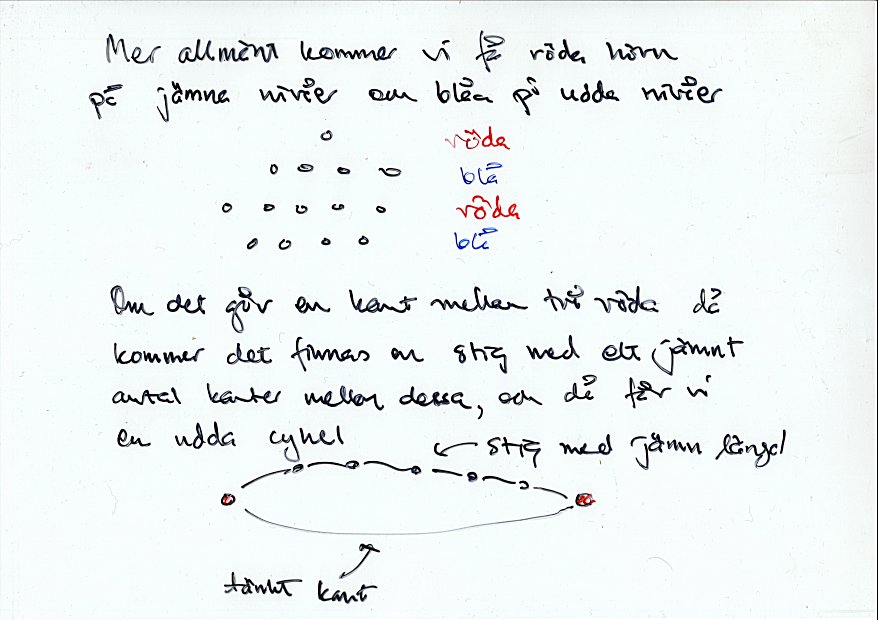 Mer allmänt kommer vi få röda hörn
på jämna nivåer och blåa på udda nivåer
röda
blå
röda
blå
Om det går en kant mellan två röda då
kommer det finnas en stig med ett jämnt
antal kanter mellan dessa, och då får vi
en udda cykel
stig med jämn längd
tänkt kant